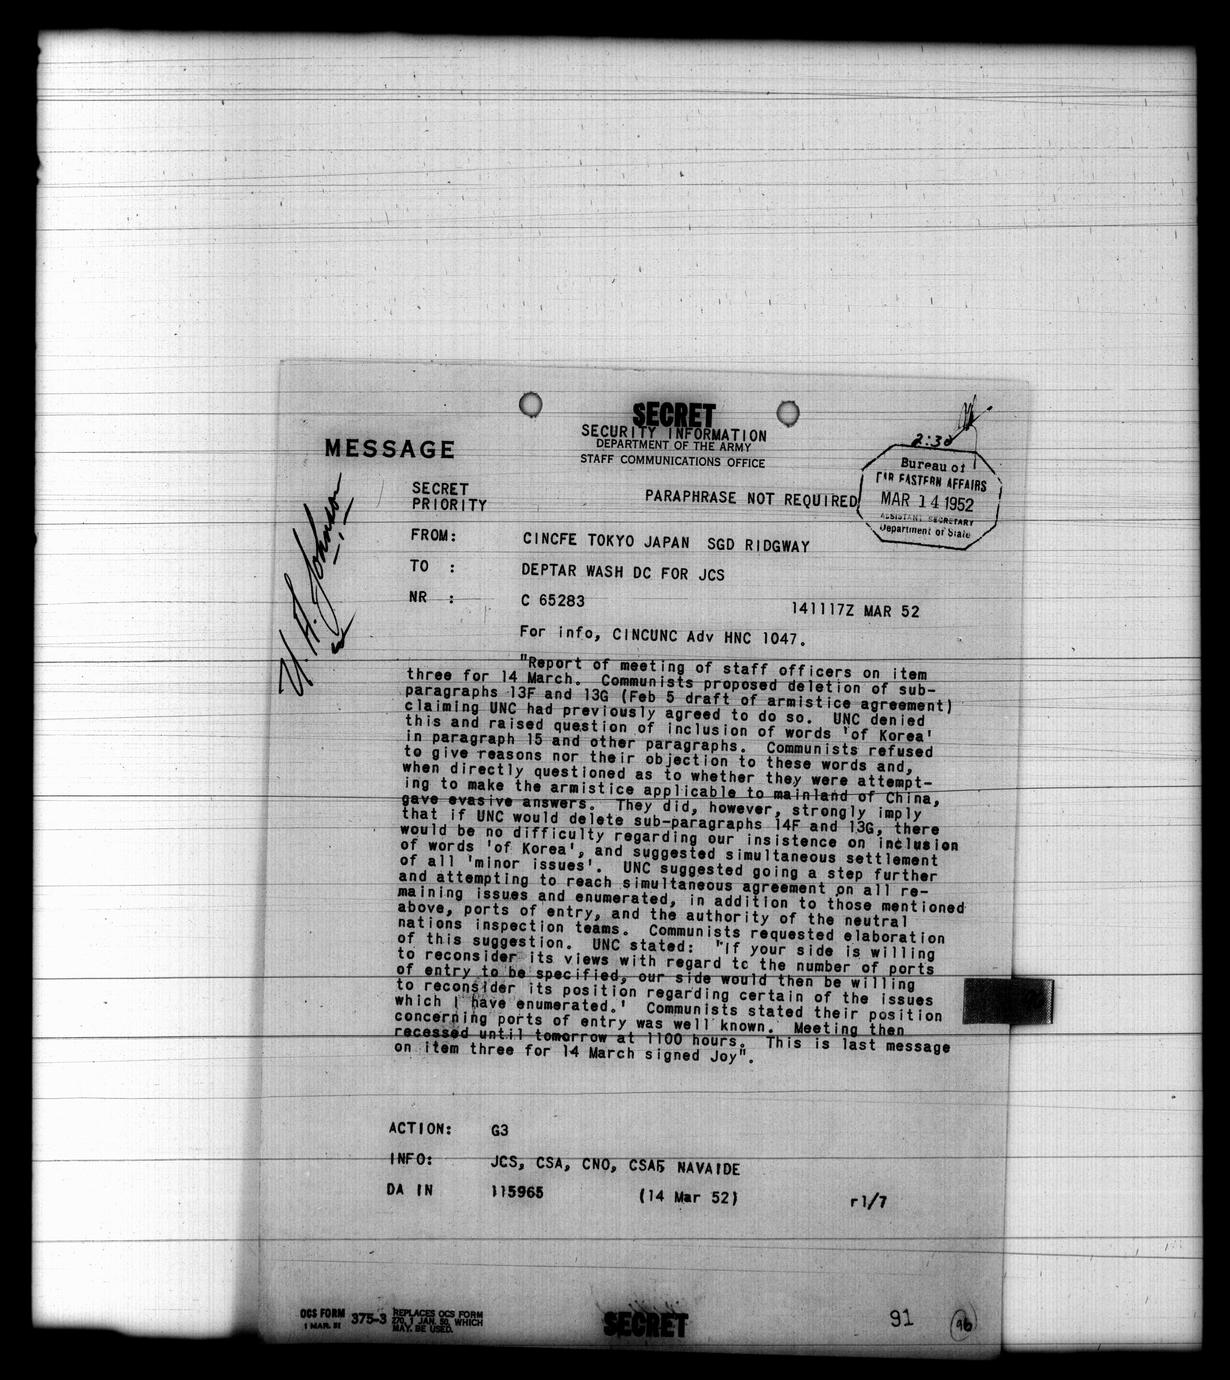 SECRET
SECURITY INFORMATION
DEPARTMENT OF THE ARMY
STAFF COMMUNICATIONS OFFICE
MESSAGE
2:30
Bureau of
FAR EASTERN AFFAIRS
MAR 14 1952
ASSISTANT SECRETARY
Department of State
U. H. Johnson
SECRET
PRIORITY
PARAPHRASE NOT REQUIRED
FROM: CINCFE TOKYO JAPAN SGD RIDGWAY
TO : DEPTAR WASH DC FOR JCS
NR : C 65283 141117Z MAR 52
For info, CINCUNC Adv HNC 1047.
"Report of meeting of staff officers on item
three for 14 March. Communists proposed deletion of sub-
paragraphs 13F and 13G (Feb 5 draft of armistice agreement)
claiming UNC had previously agreed to do so. UNC denied
this and raised question of inclusion of words 'of Korea'
in paragraph 15 and other paragraphs. Communists refused
to give reasons nor their objection to these words and,
when directly questioned as to whether they were attempt-
ing to make the armistice applicable to mainland of China,
gave evasive answers. They did, however, strongly imply
that if UNC would delete sub-paragraphs 14F and 13G, there
would be no difficulty regarding our insistence on inclusion
of words 'of Korea', and suggested simultaneous settlement
of all 'minor issues'. UNC suggested going a step further
and attempting to reach simultaneous agreement on all re-
maining issues and enumerated, in addition to those mentioned
above, ports of entry, and the authority of the neutral
nations inspection teams. Communists requested elaboration
of this suggestion. UNC stated: "If your side is willing
to reconsider its views with regard to the number of ports
of entry to be specified, our side would then be willing
to reconsider its position regarding certain of the issues
which I have enumerated.' Communists stated their position
concerning ports of entry was well known. Meeting then
recessed until tomorrow at 1100 hours. This is last message
on item three for 14 March signed Joy".
ACTION: G3
INFO: JCS, CSA, CNO, CSAF, NAVAIDE
DA IN 115965 (14 Mar 52) r1/7
OCS FORM 375-3 REPLACES OCS FORM
1 MAR. 51 270, 1 JAN. 50, WHICH
MAY. BE USED.
SECRET
91
96